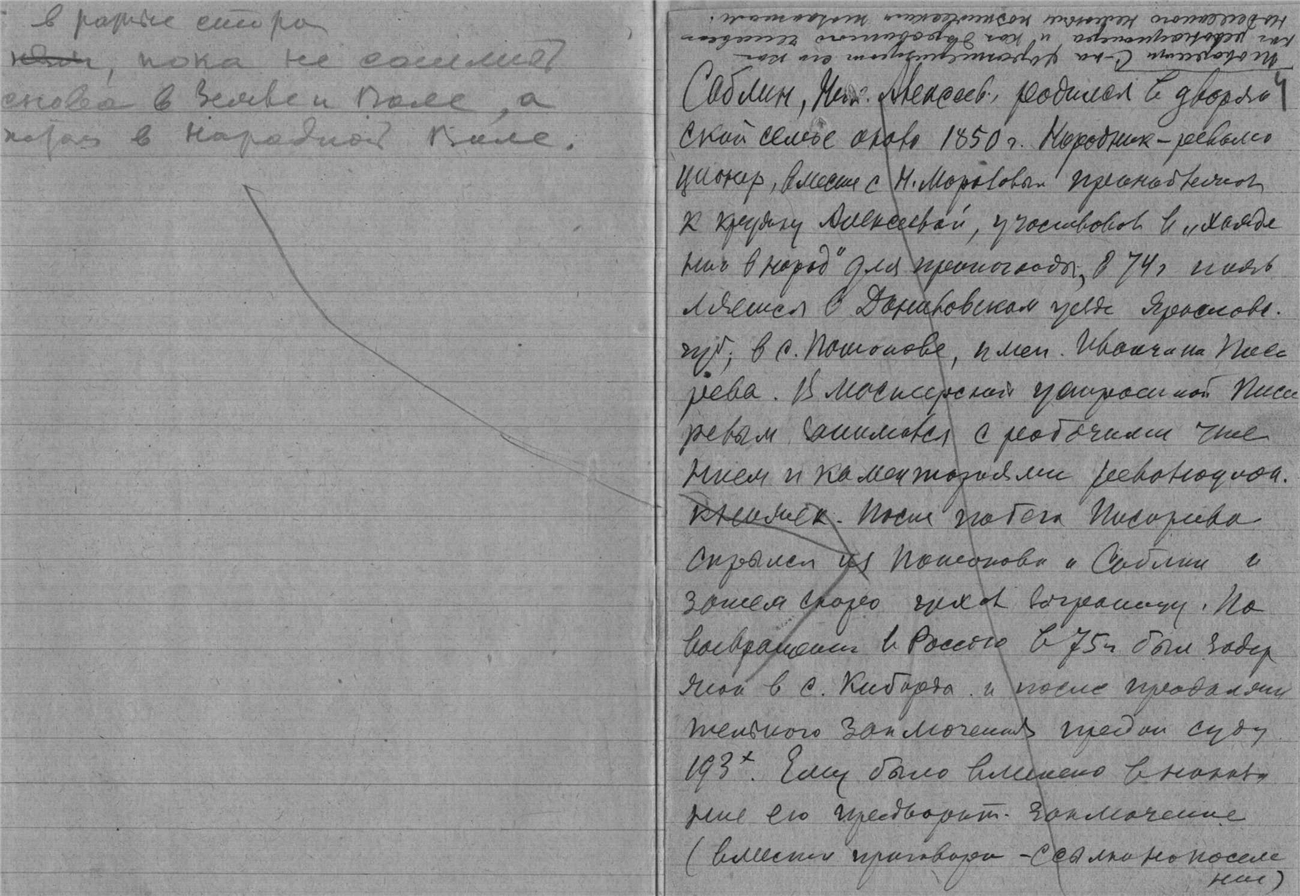 в разные сторо
ны, пока не сошлись
снова в Земле и Воле, а
потом в Народной Воле.
как революционера и как даровитого человека
4
Саблин, Ник. Алексеев. родился в дворян
ской семье около 1850 г. Народник-револю
ционер, вместе с Н. Морозовым принадлежал
к кружку Алексеевой, участвовал в „хожде
нии в народ" для пропаганды, в 74 г появ
ляется в Даниловском уезде Ярославс.
губ, в с. Потапове, имен. Иванчина Писа
рева. В мастерской устроенной Писа
ревым занимался с рабочими чте
нием и коментариями революцион.
книжек. После побега Писарева
скрылся из Потапова и Саблин и
затем скоро уехал заграницу. По
возвращении в Россию в 75 г был задер
жан в с. Кибарта и после продолжи
тельного заключения предан суду
193х. Ему было вменено в наказа
ние его предварит. заключение
(вместо приговора - ссылка на поселе
ние)